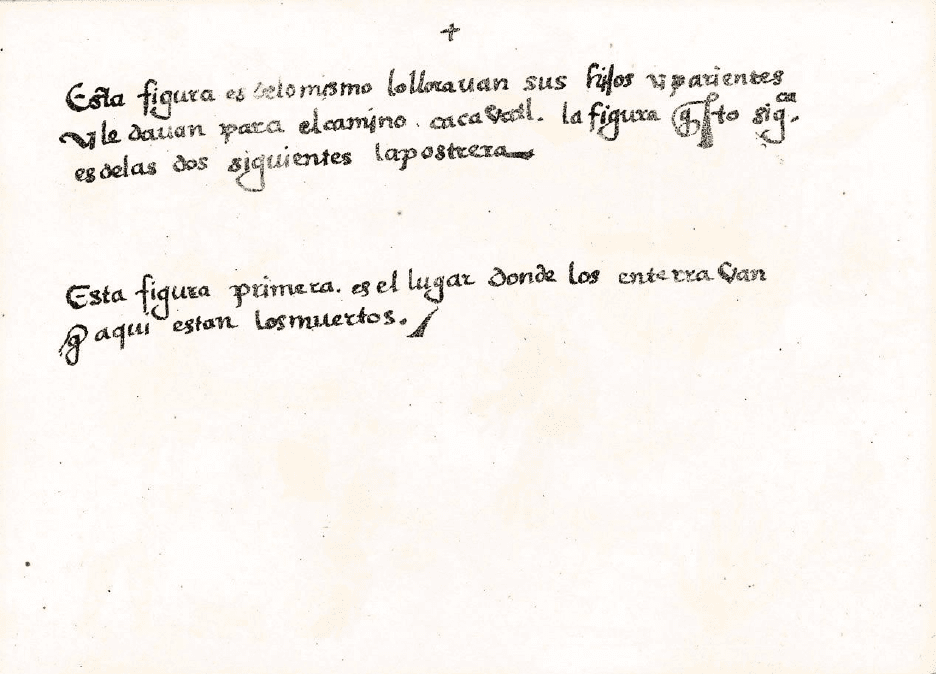 +
Esta figura es delo mismo lo llorauan sus hijos y parientes
y le dauan para el camino . cacavatl. la figura q̃ esto sigᶜᵃ.
es delas dos siguientes la postrera
Esta figura primera. es el lugar donde los enterravan
q̃ aqui estan los muertos.